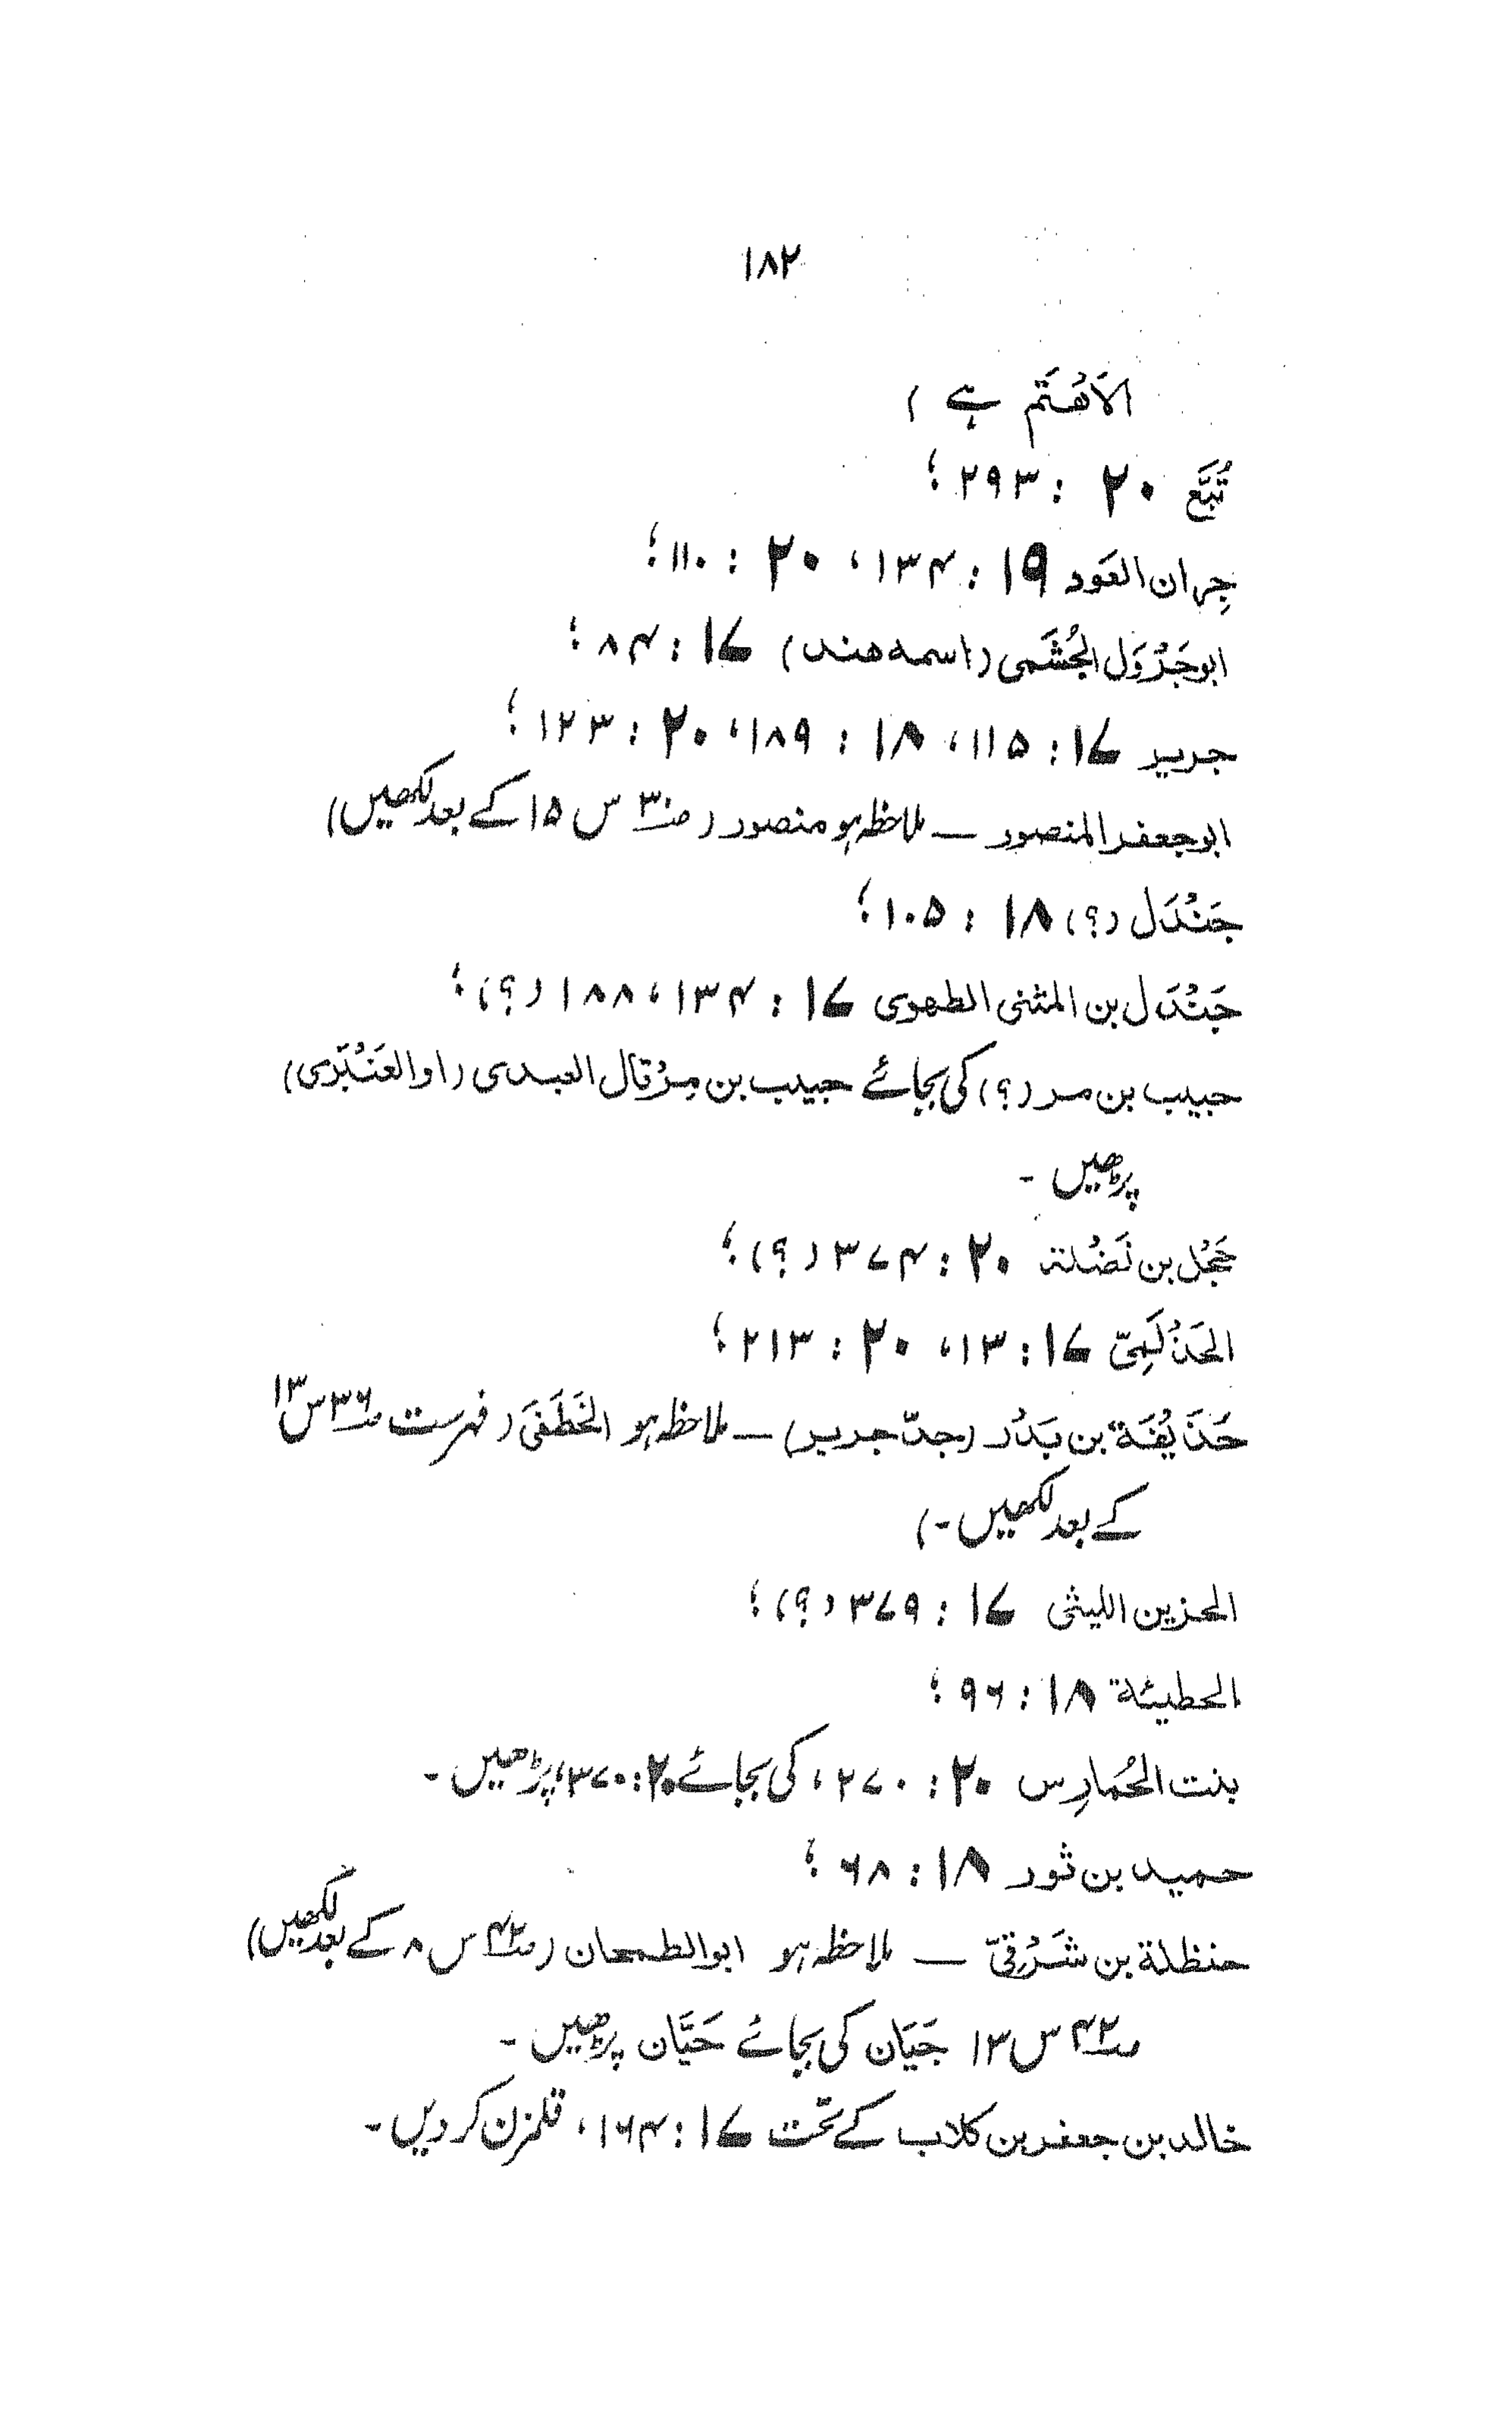 ۱۸۲
الاَهْتَم ہے )
تُبَّع ۲۰ : ۲۹۳ ؛
جِران العَود ۱۹ : ۱۳۴ ، ۲۰ : ۱۱۰ ؛
ابو جَرْوَل الجُشَمی (اسمه هند) ۱۷ : ۸۴ ؛
جریر ۱۷ : ۱۱۵ ، ۱۸ : ۱۸۹ ، ۲۰ : ۱۲۳ ؛
ابو جعفر المنصور — ملاحظہ ہو منصور ( ص۳۰ س ۱۵ کے بعد لکھیں)
جَنْدَل (؟) ۱۸ : ۱۰۵ ؛
جَنْدَل بن المثنی الطهوی ۱۷ : ۱۳۴ ، ۱۸۸ (؟) ؛
حبیب بن مر (؟) کی بجائے حبیب بن مِرْقال العبدی (او العَنْبَری)
پڑھیں ۔
حَجْل بن نَضْلة ۲۰ : ۳۷۴ (؟) ؛
الحَذْلَمِیّ ۱۷ : ۱۳ ، ۲۰ : ۲۱۳ ؛
حُذَیْفَة بن بَدْر (جدّ جریر) — ملاحظہ ہو الخَطَفَیٰ ( فہرست ص۳۶ س ۱۳
کے بعد لکھیں ۔)
الحزین اللیثی ۱۷ : ۳۷۹ (؟) ؛
الحطیئة ۱۸ : ۹۶ ؛
بنت الحُمارِس ۲۰ : ۲۷۰ ، کی بجائے ۲۰ : ۳۷۰ ، پڑھیں ۔
حمید بن ثور ۱۸ : ۶۸ ؛
حنظلة بن شَرْقِیّ — ملاحظہ ہو ابو الطمحان ( ص۴۲ س ۸ کے بعد لکھیں)
ص۴۲ س ۱۳ جَیَان کی بجائے حَیَّان پڑھیں ۔
خالد بن جعفر بن کلاب کے تحت ۱۷ : ۱۶۴ ، قلمزن کر دیں ۔